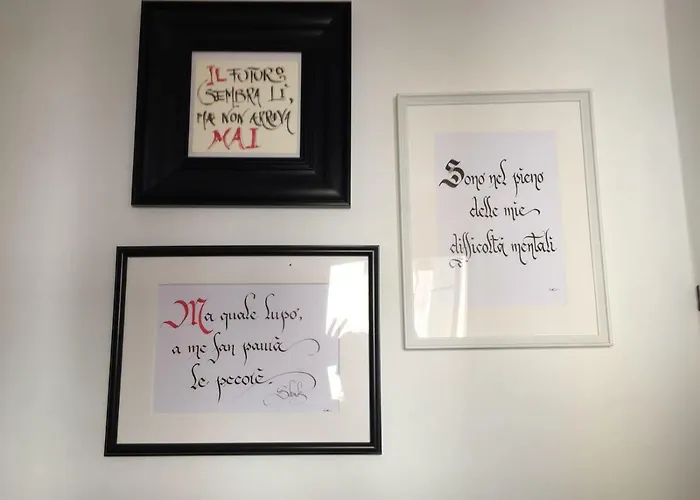 IL FUTURO,
SEMBRA LÌ,
MA NON ARRIVA
MAI
Sono nel pieno
delle mie
difficoltà mentali
Ma quale lupo,
a me fan paura
le pecore.